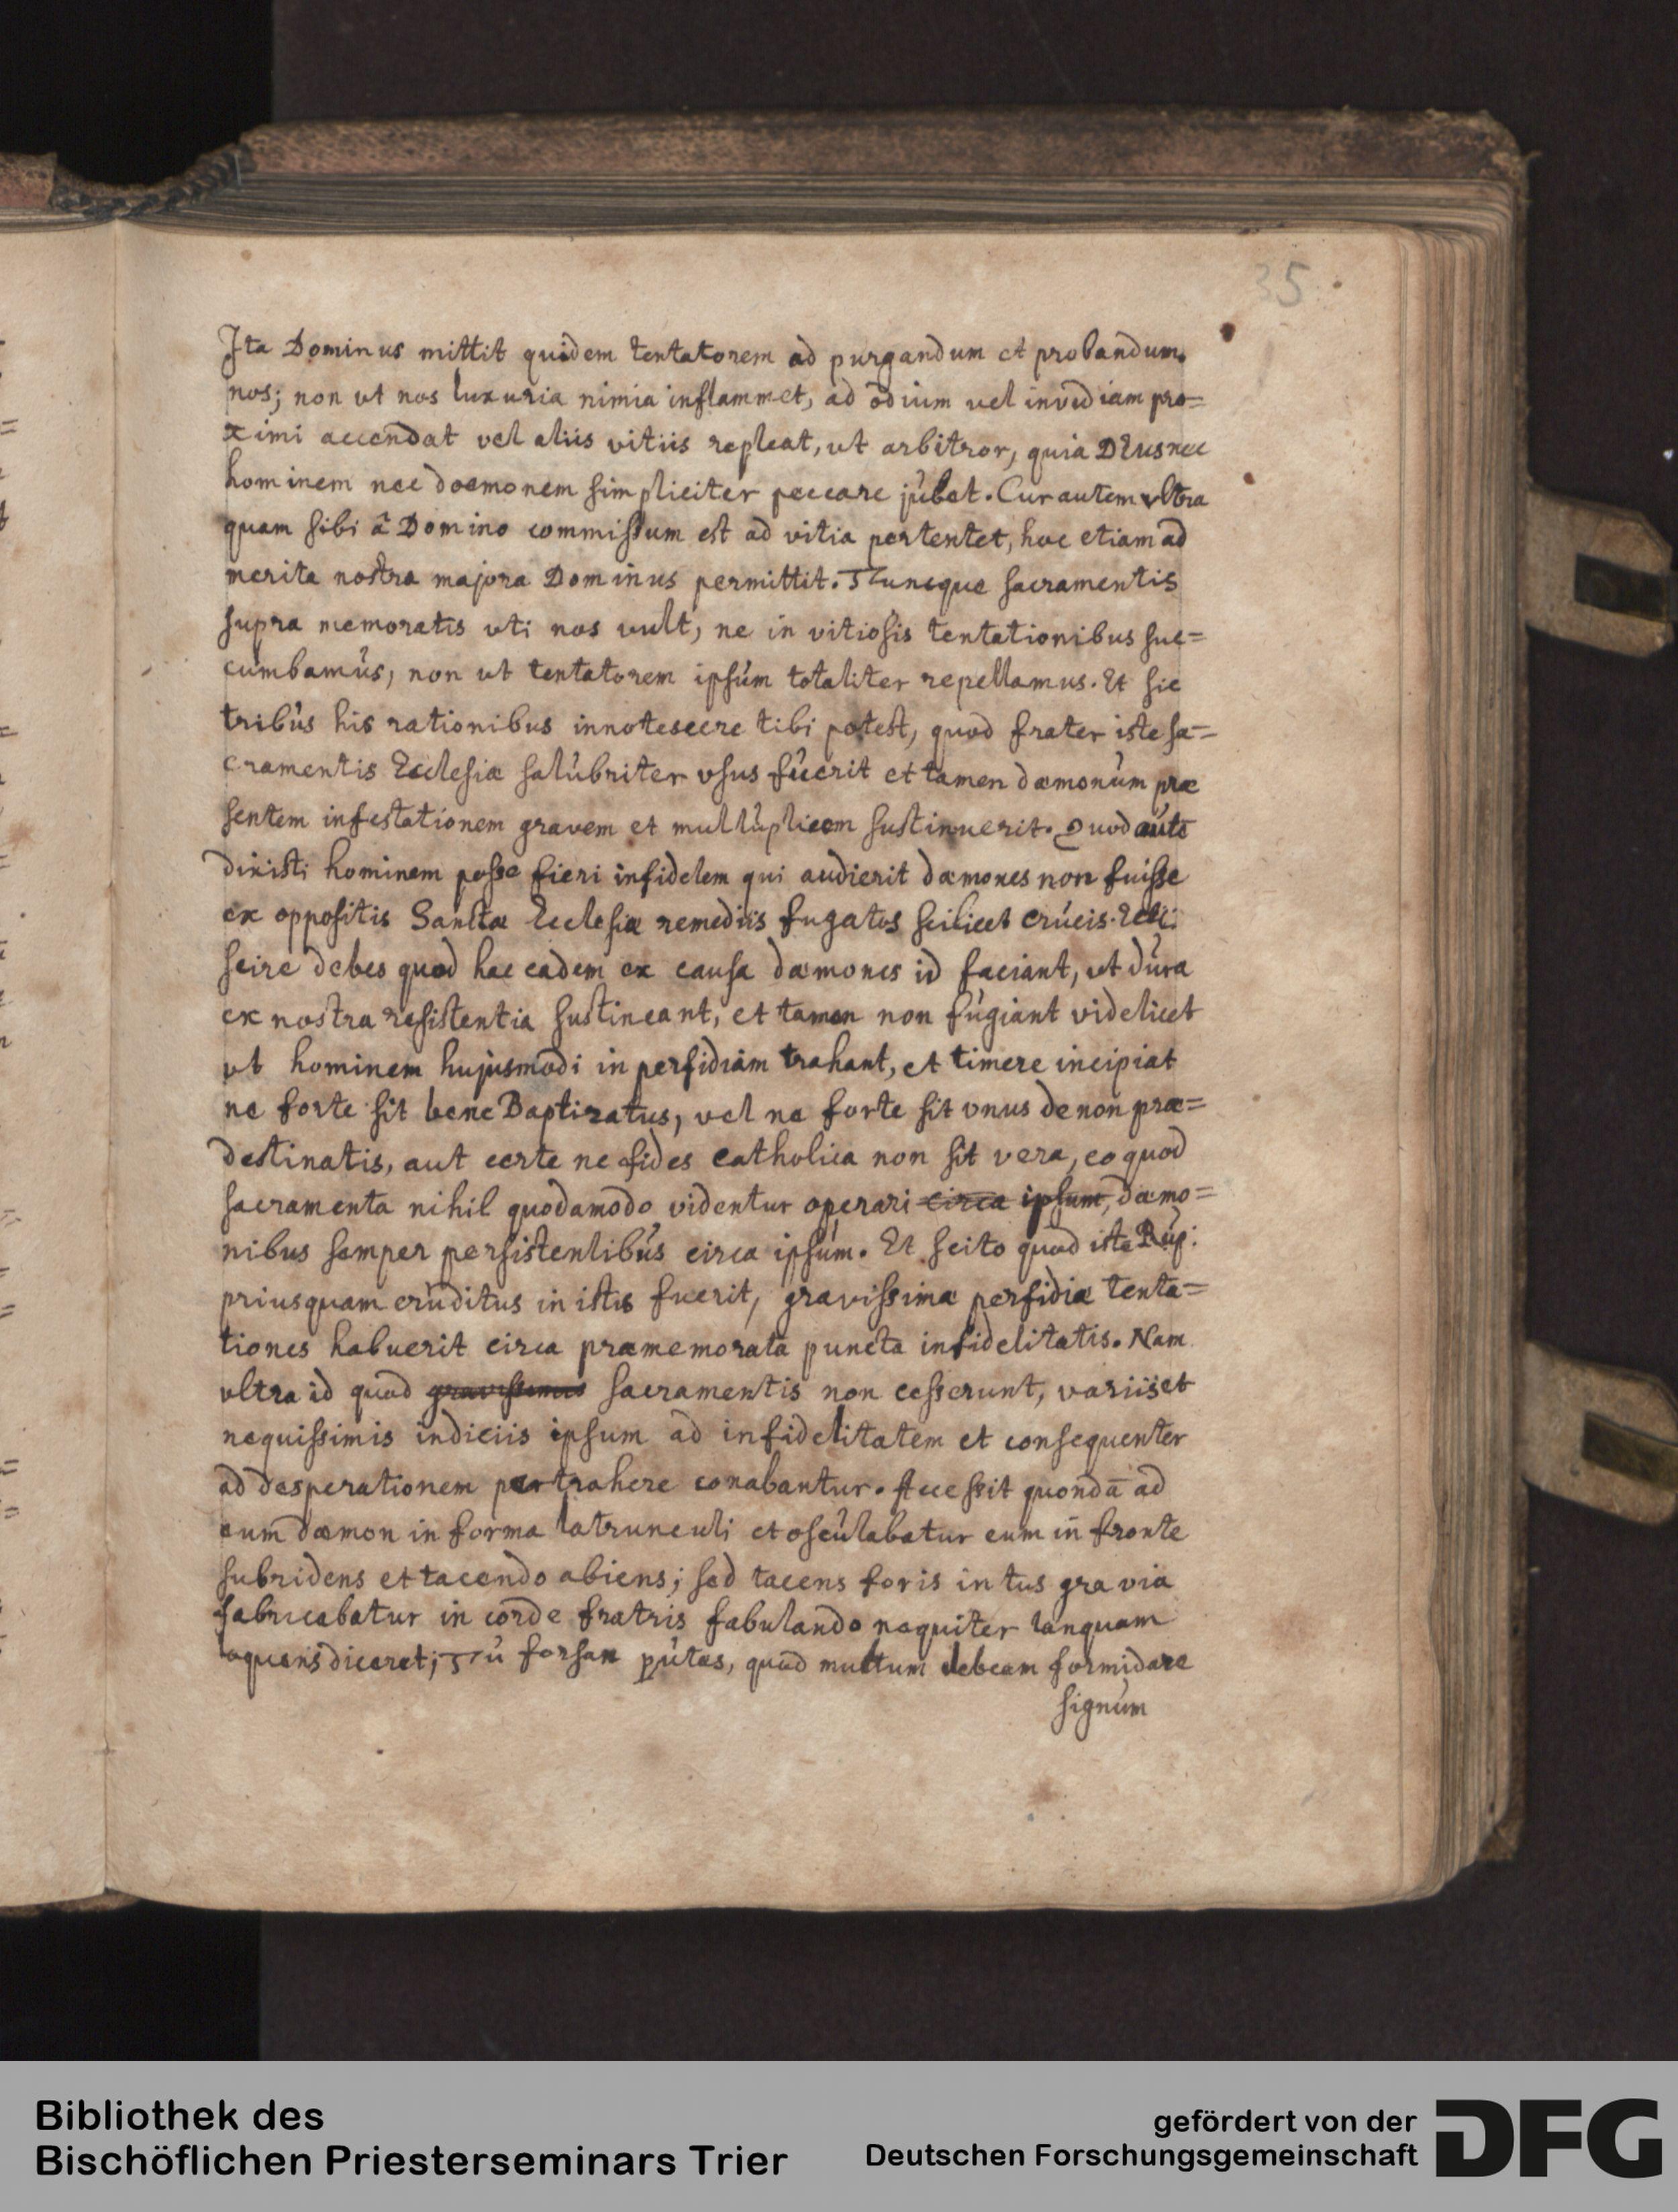 35
Ita Dominus mittit quidem tentatorem ad purgandum et probandum
nos; non ut nos luxuria nimia inflammet, ad odium vel invidiam pro=
ximi accendat vel aliis vitiis repleat, ut arbitror, quia DEus nec
hominem nec doemonem simpliciter peccare jubet. Cur autem ultra
quam sibi â Domino commissum est ad vitia pertentet, hoc etiam ad
merita nostra majora Dominus permittit. Tuncque sacramentis
supra memoratis uti nos vult, ne in vitiosis tentationibus suc=
cumbamus, non ut tentatorem ipsum totaliter repellamus. Et sic
tribus his rationibus innotescere tibi potest, quod frater iste sa=
cramentis Ecclesiæ salubriter usus fuerit et tamen dæmonum præ
sentem infestationem gravem et multuplicem sustinuerit. Quod aute
dixisti hominem posse fieri infidelem qui audierit dæmones non fuisse
ex oppositis Sanctæ Ecclesiæ remediis fugatos scilicet crucis.
scire debes quod hac eadem ex causa dæmones id faciant, ut dura
ex nostra resistentia sustineant, et tamen non fugiant videlicet
ut hominem hujusmodi in perfidiam trahant, et timere incipiat
ne forte sit bene Baptizatus, vel ne forte sit unus de non præ=
destinatis, aut certe ne fides catholica non sit vera, eo quod
sacramenta nihil quodamodo videntur operari circa ipsum, dæmo=
nibus semper persistentibus circa ipsum. Et scito quod iste Rup:
priusquam eruditus in istis fuerit, gravissimæ perfidiæ tenta=
tiones habuerit circa præmemorata puncta infidelitatis. Nam
ultra id quod gravissimis sacramentis non cesserunt, variis et
nequissimis indiciis ipsum ad infidelitatem et consequenter
ad desperationem pertrahere conabantur. Accessit quondā ad
eum dæmon in forma latrunculi et osculabatur eum in fronte
subridens et tacendo abiens; sed tacens foris intus gravia
fabricabatur in corde fratris fabulando nequiter tanquam
loquens diceret; Tu forsan putas, quod multum debeam formidare
signum
Bibliothek des
Bischöflichen Priesterseminars Trier
gefördert von der
Deutschen Forschungsgemeinschaft
DFG